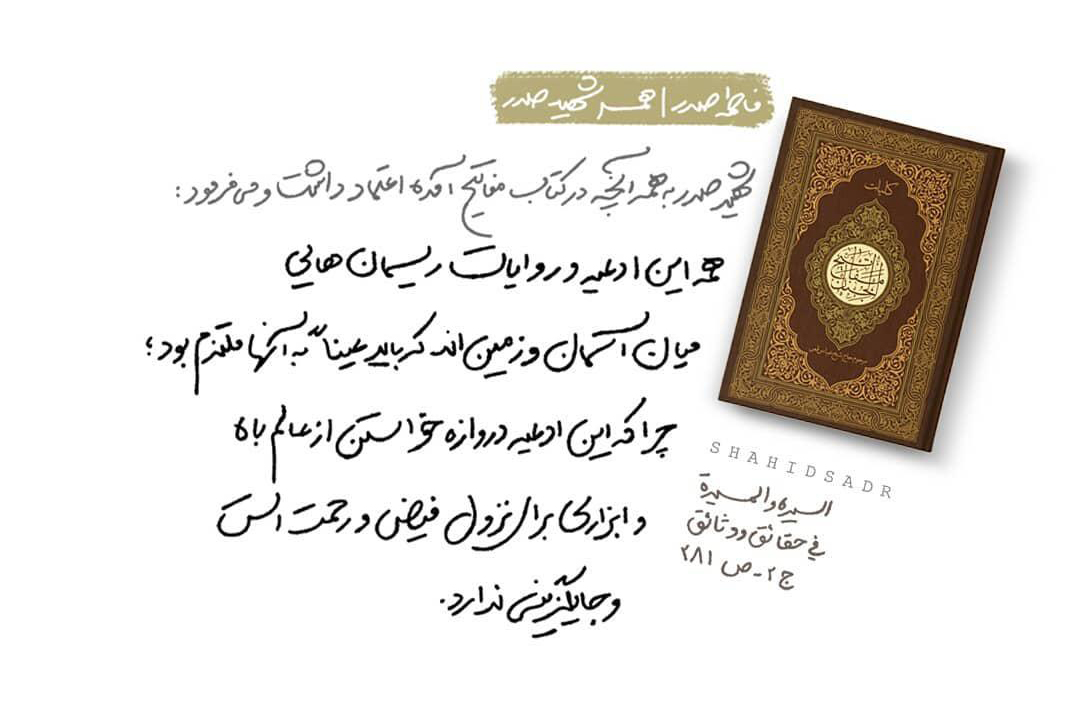 فاطمه صدر | همسر شهید صدر
شهید صدر به همه آنچه در کتاب مفاتیح آمده اعتماد داشت و می‌فرمود:
همه این ادعیه و روایات ریسمان هایی
میان آسمان و زمین اند که باید عیناً به آنها ملتزم بود؛
چرا که این ادعیه دروازه خواستن از عالم بالا
و ابزاری برای نزول فیض و رحمت است
و جایگزینی ندارد.
کلیات
مفاتیح الجنان
SHAHIDSADR
السيرة والمسيرة
في حقائق ووثائق
ج ۲ - ص ۲۸۱